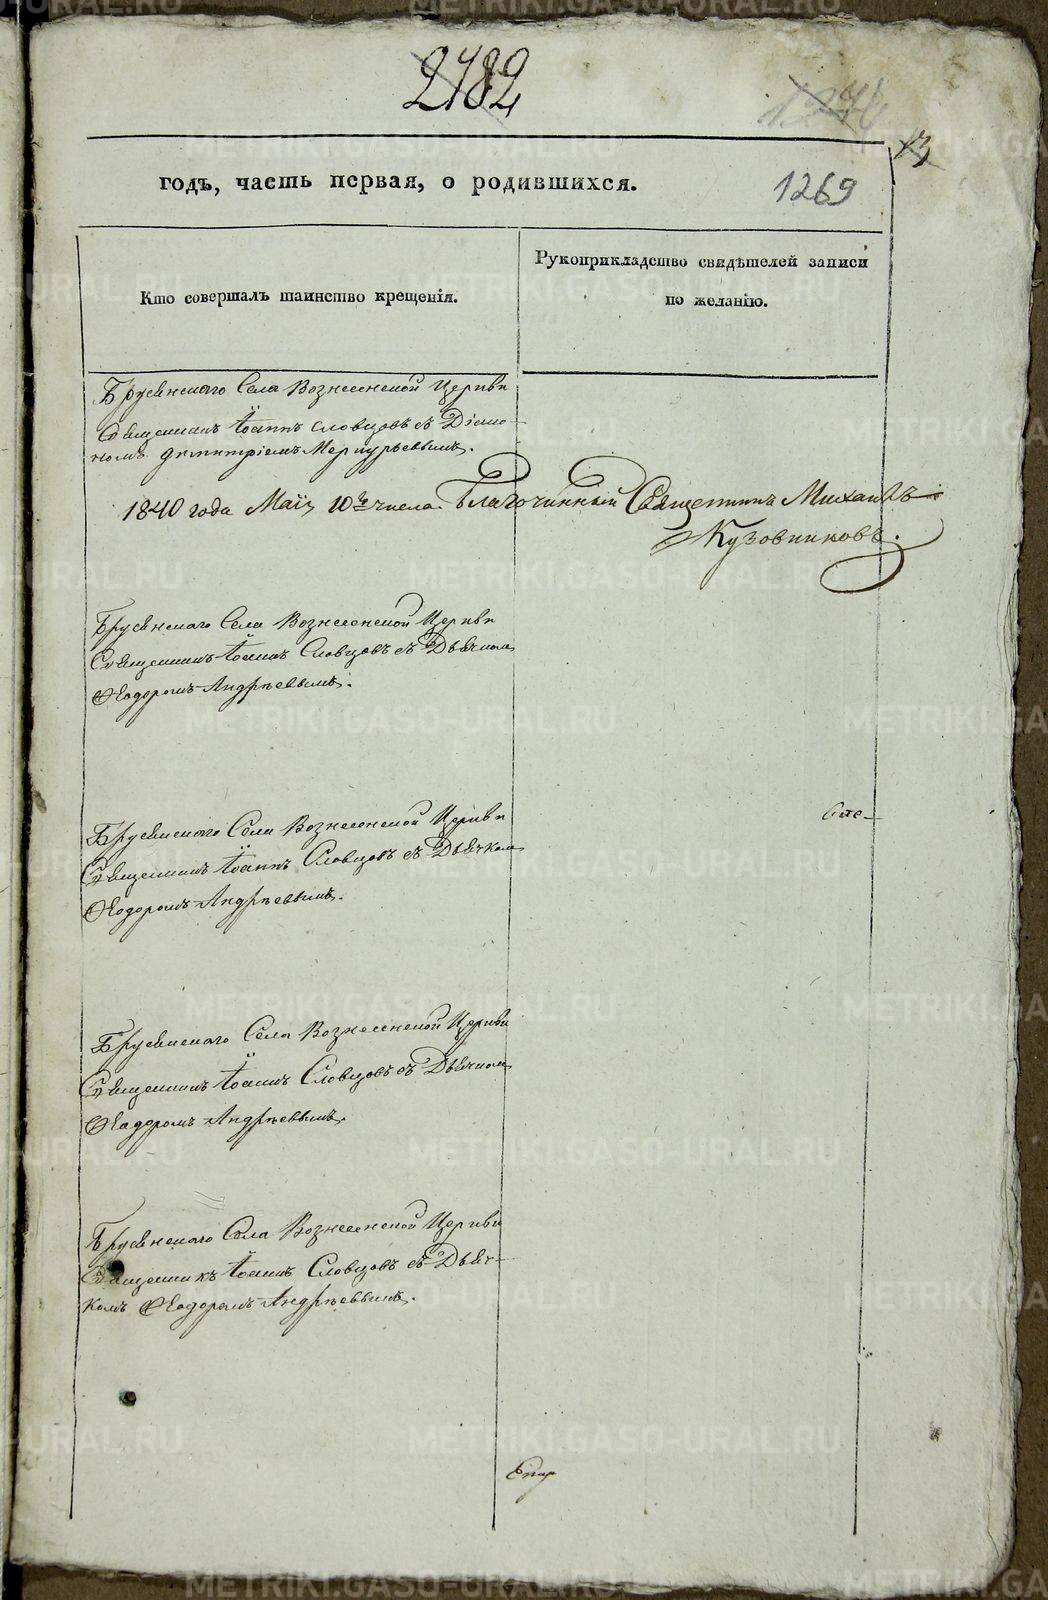 2782
1269
13
годъ, часть первая, о родившихся.
Кто совершалъ таинство крещенія.
Рукоприкладство свидѣтелей записи
по желанію.
Брусянскаго Села Вознесенской Церкви
Священникъ Іоаннъ Словцовъ съ Діако-
номъ Димитріемъ Меркурьевымъ.
1840 года Маія 10го числа. Благочинный Священникъ Михаилъ
Кузовниковъ.
Брусянскаго Села Вознесенской Церкви
Священникъ Іоаннъ Словцовъ съ Дьячкомъ
Ѳеодоромъ Андрѣевымъ.
Брусянскаго Села Вознесенской Церкви
Священникъ Іоаннъ Словцовъ съ Дьячкомъ
Ѳеодоромъ Андрѣевымъ.
Брусянскаго Села Вознесенской Церкви
Священникъ Іоаннъ Словцовъ съ Дьячкомъ
Ѳеодоромъ Андрѣевымъ.
Брусянскаго Села Вознесенской Церкви
Священникъ Іоаннъ Словцовъ съ Дьяч-
комъ Ѳеодоромъ Андрѣевымъ.
METRIKI.GASO-URAL.RU